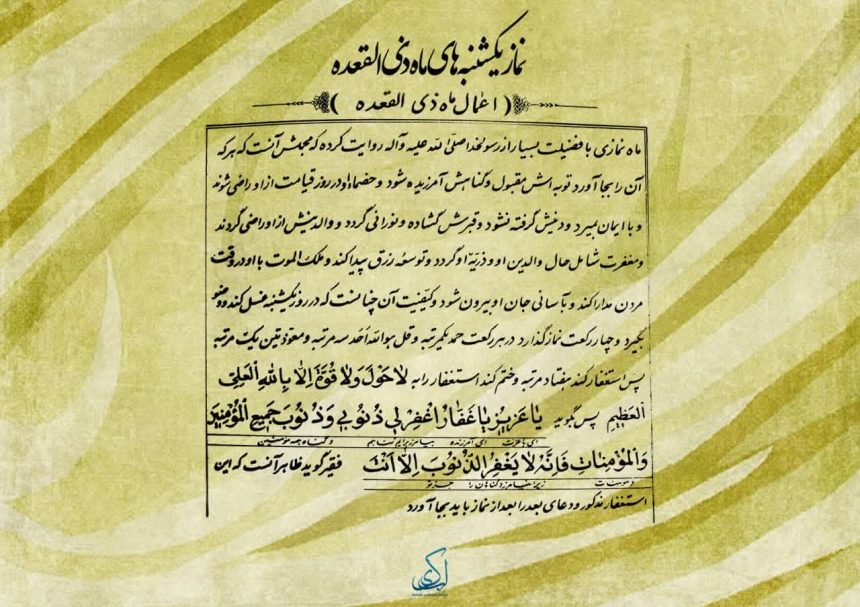 نماز یکشنبه های ماه ذی القعده
( اعمال ماه ذی القعده )
ماه نمازی با فضیلت بسیار از رسولخدا صلی الله علیه و آله روایت کرده که مجملش آنست که هر که
آن را بجا آورد توبه اش مقبول و گناهش آمرزیده شود و خصماء او در روز قیامت از او راضی شوند
و با ایمان بمیرد و دینش گرفته نشود و قبرش گشاده و نورانی گردد و والدینش از او راضی گردند
و مغفرت شامل حال والدین او و ذریّه او گردد و توسعه رزق پیدا کند و ملک الموت با او در وقت
مردن مدارا کند و بآسانی جان او بیرون شود و کیفیت آن چنانست که در روز یکشنبه غسل کند و وضو
بگیرد و چهار رکعت نماز گذارد در هر رکعت حمد یکمرتبه و قل هو الله احد سه مرتبه و معوّذتین یک مرتبه
پس استغفار کند هفتاد مرتبه و ختم کند استغفار را به لا حَوْلَ وَلا قُوَّةَ اِلاّ بِاللهِ الْعَلِیِّ
الْعَظیمِ پس بگوید یا عَزیزُ یا غَفّارُ اغْفِرْ لی ذُنُوبی وَ ذُنُوبَ جَمیعِ الْمُؤْمِنینَ
ای با عزت ای آمرزنده بیامرز برایم گناهم و گناه همه مؤمنین
وَالْمُؤْمِناتِ فَاِنَّهُ لا یَغْفِرُ الذُّنُوبَ اِلاّ اَنْتَ فقیر گوید ظاهر آنست که این
و مؤمنات زیرا نیامرزد گناهان را جز تو
استغفار مذکور و دعای بعد را بعد از نماز باید بجا آورد